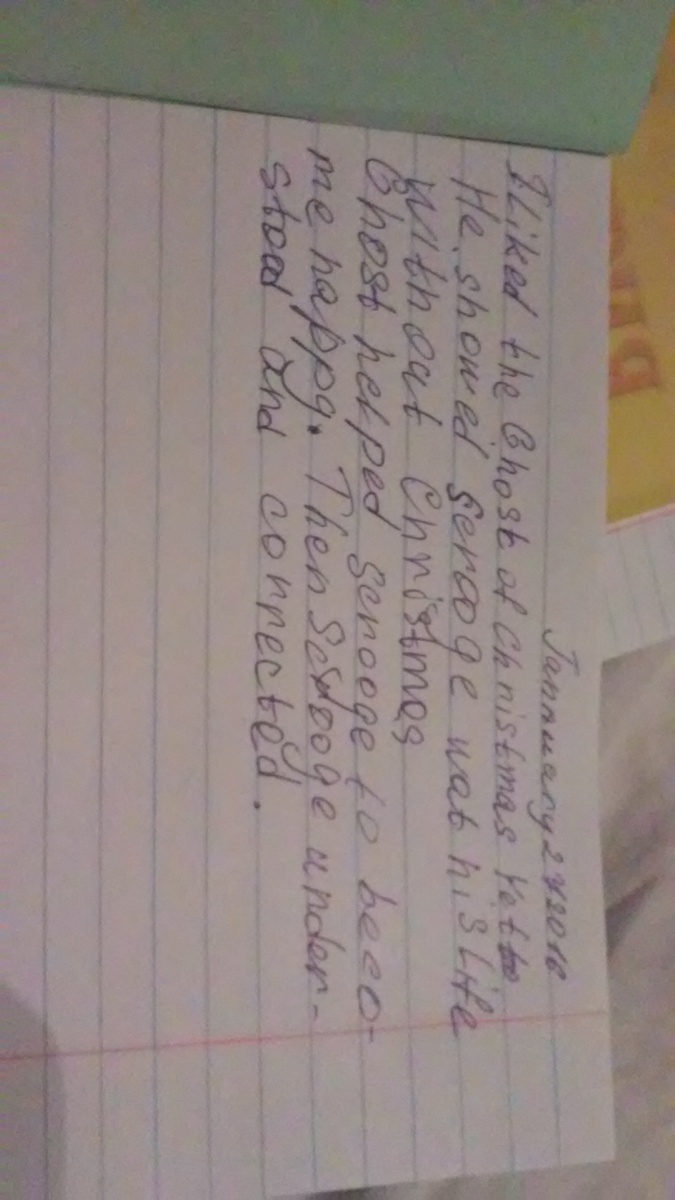 Jannuary 27 2016
I liked the Ghost of Christmas Yet to
He showed Scrooge wat his life
without Christmas
Ghost helped Scrooge to beco-
me happy. Then Scrooge under-
stood and corrected.